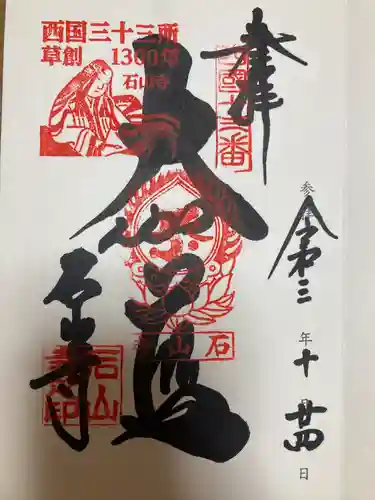 西国三十三所
草創 1300年
石山寺
奉拝
西国十三番
大伽藍
石山寺
石山寺
石山寺印
参拝
令和三
年
十
月
廿四
日